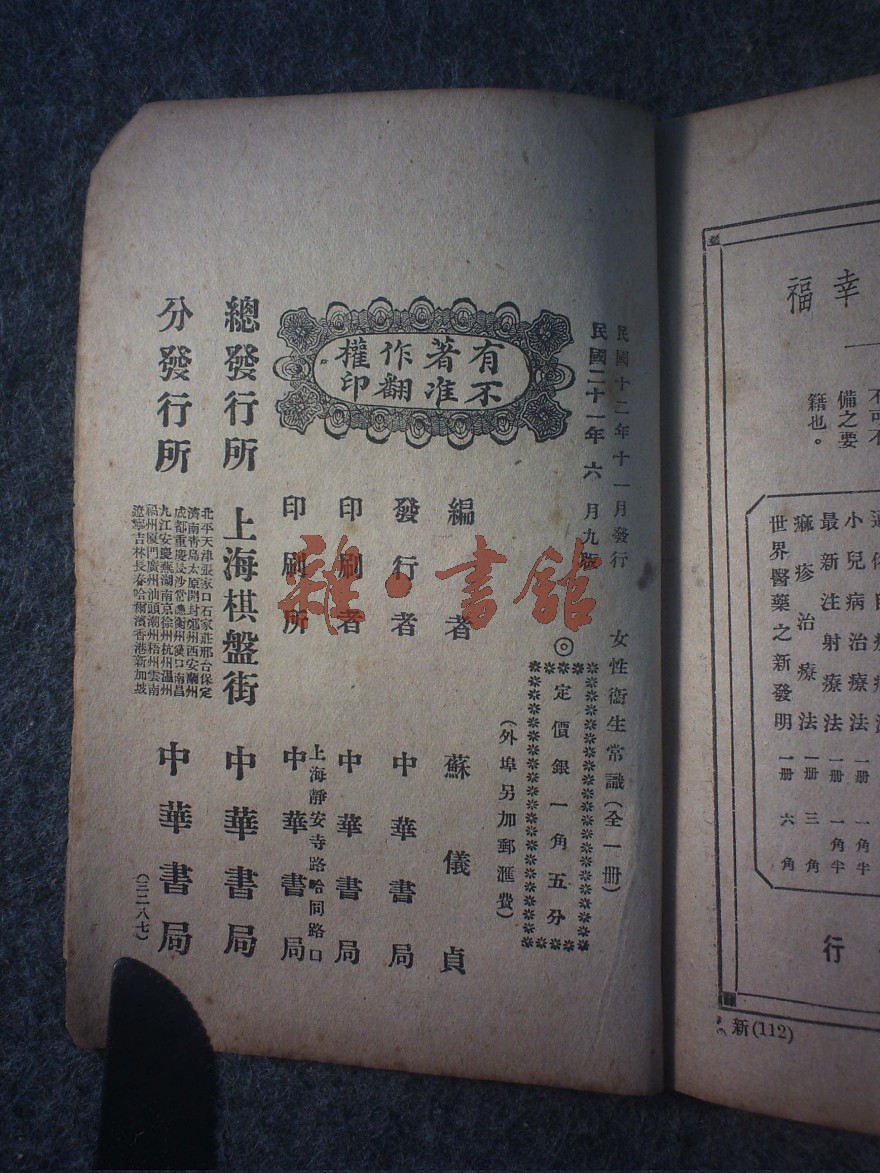 民國十二年十一月發行
民國二十一年六月九版
女性衞生常識(全一冊)
◎定價銀一角五分
(外埠另加郵滙費)
有著作權
不准翻印
編者 蘇儀貞
發行者 中華書局
印刷者 中華書局
上海靜安寺路哈同路口
印刷所 中華書局
總發行所 上海棋盤街 中華書局
分發行所 中華書局
北平天津張家口石家莊邢台保定
濟南青島太原開封鄭州西安蘭州
成都重慶長沙常德衡州漢口南昌
九江安慶蕪湖南京徐州杭州溫州
福州厦門廣州汕頭潮州梧州雲南
遼寧吉林長春哈爾濱香港新加坡
(三二八七)
雜·書館
幸福
不可不
備之要
籍也。
小兒病治療法 一冊 一角
最新注射療法 一冊 一角半
痲疹治療法 一冊 三角
世界醫藥之新發明 一冊 六角
行
新(112)